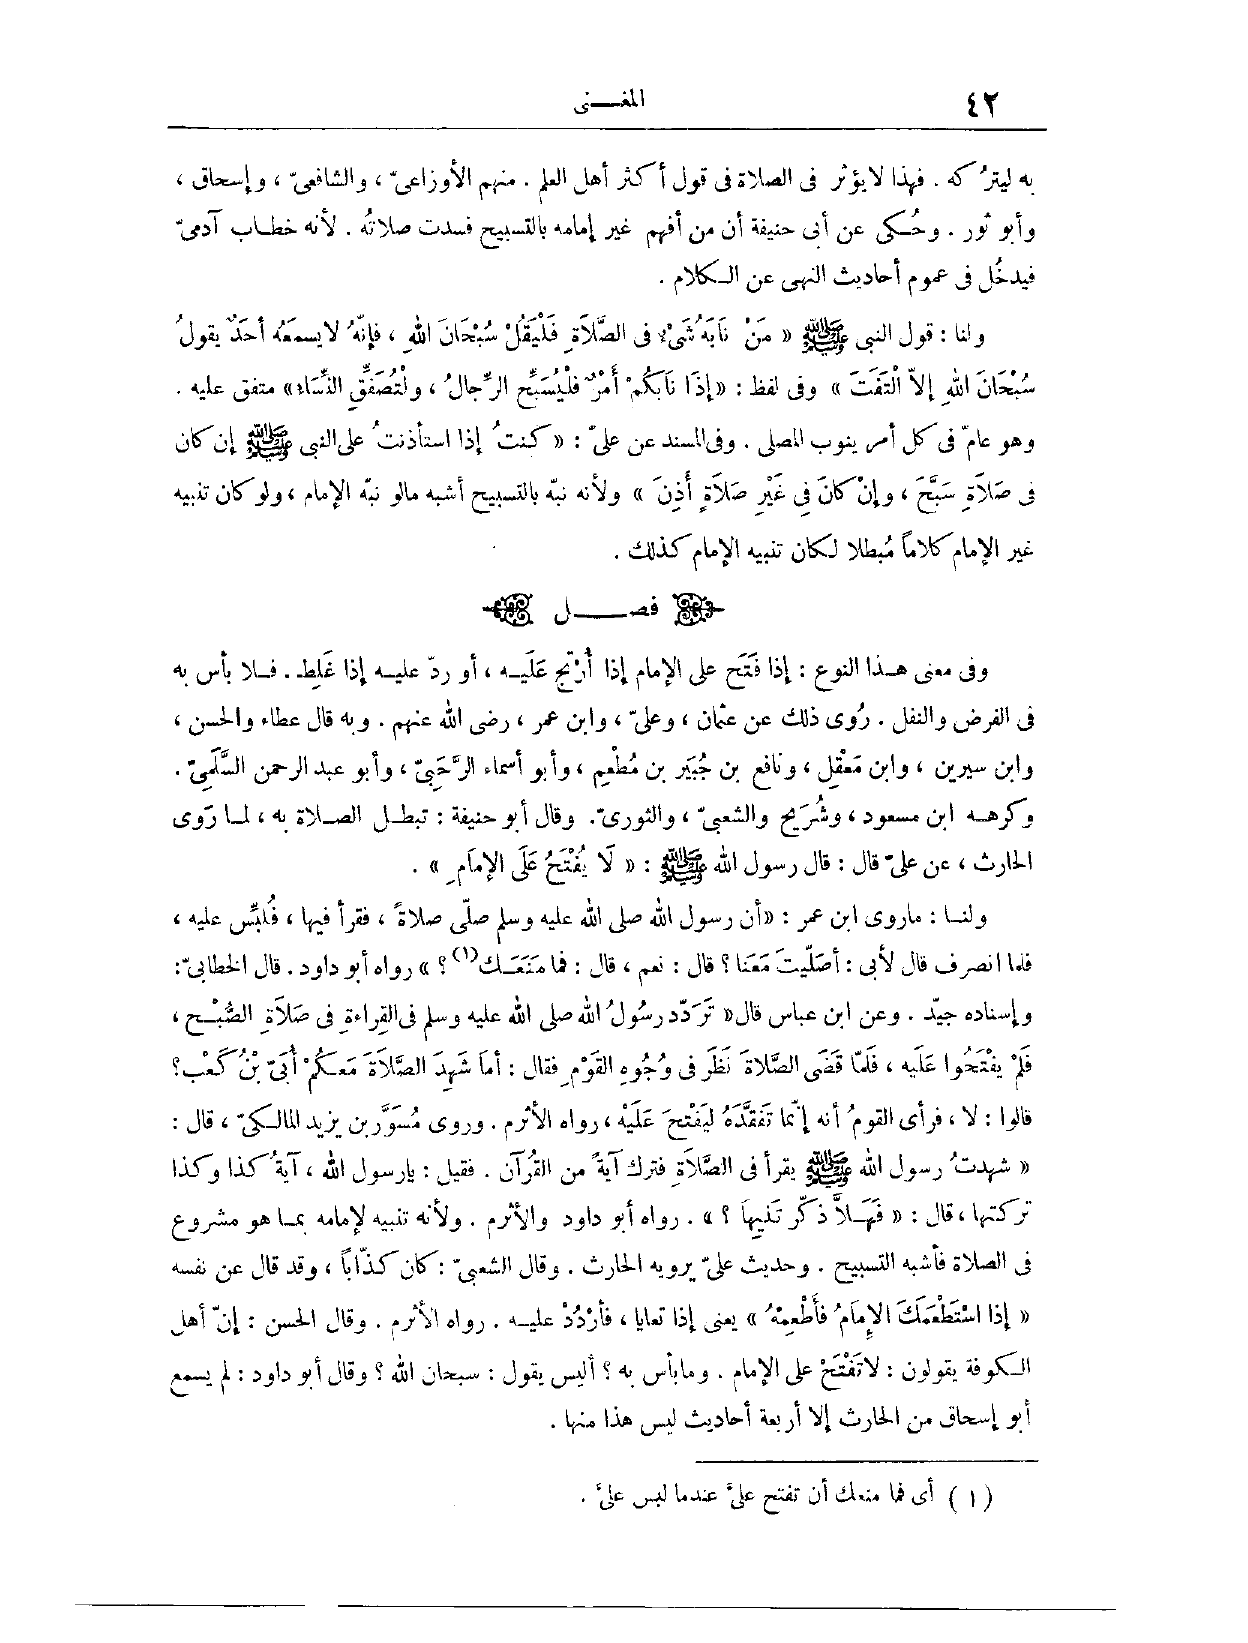 ٤٢
المغـــنى
به ليترُكه . فهذا لا يؤثر فى الصلاة فى قول أكثر أهل العلم . منهم الأوزاعىّ ، والشافعىّ ، وإسحاق ،
وأبو ثور . وحُـكى عن أبى حنيفة أن من أفهم غير إمامه بالتسبيح فسدت صلاتُه . لأنه خطـاب آدمىّ
فيدخُل فى عموم أحاديث النهى عن الـكلام .
ولنا : قول النبى ﷺ « مَنْ نَابَهُ شَىْءٌ فى الصَّلَاةِ فَلْيَقُلْ سُبْحَانَ اللهِ ، فإنّهُ لا يسمَعُه أحَدٌ يقولُ
سُبْحَانَ اللهِ إلاّ الْتَفَتَ » وفى لفظ : «إذَا نَابَكُمْ أَمْرٌ فلْيُسَبِّحِ الرِّجالُ ، ولْتُصَفِّقِ النِّسَاء» متفق عليه .
وهو عامّ فى كل أمر ينوب المصلى . وفى المسند عن علىّ : «كنتُ إذا استأذنتُ على النبى ﷺ إن كان
فى صَلَاةٍ سَبَّحَ ، وإنْ كانَ فِى غَيْرِ صَلَاةٍ أَذِنَ » ولأنه نبّه بالتسبيح أشبه مالو نبّه الإمام ، ولو كان تنبيه
غير الإمام كلاماً مُبطلا لكان تنبيه الإمام كذلك .
فصـــــل
وفى معنى هـذا النوع : إذا فَتَحَ على الإمام إذا أُرْتِجَ عَلَيـه ، أو ردّ عليـه إذا غَلِط . فـلا بأس به
فى الفرض والنفل . رُوى ذلك عن عثمان ، وعلىّ ، وابن عمر ، رضى الله عنهم . وبه قال عطاء والحسن ،
وابن سيرين ، وابن مَعْقِل ، ونافع بن جُبَيْر بن مُطْعِم ، وأبو أسماء الرَّحَبِىّ ، وأبو عبد الرحمن السُّلَمِىّ .
وكرهـه ابن مسعود ، وشُرَيح والشعبىّ ، والثورىّ. وقال أبو حنيفة : تبطـل الصـلاة به ، لمـا رَوى
الحارث ، عن علىّ قال : قال رسول الله ﷺ : « لَا يُفْتَحُ عَلَى الإمَامِ » .
ولنـا : ماروى ابن عمر : «أن رسول الله صلى الله عليه وسلم صلّى صلاةً ، فقرأ فيها ، فَلُبِّس عليه ،
فلما انصرف قال لأبى : أصَلَّيتَ مَعَنا ؟ قال : نعم ، قال : فما مَنَعَـك(١) ؟ » رواه أبو داود . قال الخطابىّ:
وإسناده جيّد . وعن ابن عباس قال« تَرَدّد رسُولُ الله صلى الله عليه وسلم فى القِراءةِ فى صَلَاةِ الصُّبْـح ،
فَلَمْ يفْتَحُوا عَلَيه ، فَلَمّا قَضَى الصَّلاةَ نَظَر فى وُجُوهِ القَوْمِ فقال : أمَا شَهِدَ الصَّلَاةَ مَعَـكُمْ أُبَىّ بْنُ كَعْب؟
قالوا : لا ، فرأى القومُ أنه إنّما تَفَقَّدَهُ ليَفْتحَ عَلَيْه ، رواه الأثرم . وروى مُسَوَّر بن يزيد المالـكىّ ، قال :
« شهدتُ رسول الله ﷺ يقرأ فى الصَّلَاةِ فترك آيةً من القُرآن . فقيل : يارسول الله ، آيةُ كذا وكذا
تركتها ، قال : « فَهَـلاَّ ذكّر تَنِيهاَ ؟ » . رواه أبو داود والأثرم . ولأنه تنبيه لإمامه بمـا هو مشروع
فى الصلاة فأشبه التسبيح . وحديث علىّ يرويه الحارث . وقال الشعبىّ : كان كذّاباً ، وقد قال عن نفسه
« إذا اسْتَطْعَمَكَ الإمَامُ فأَطْعِمْهُ » يعنى إذا تعايا ، فأرْدُدْ عليـه . رواه الأثرم . وقال الحسن : إنّ أهل
الـكوفة يقولون : لا تَفْتَحْ على الإمام . وما بأس به ؟ أليس يقول : سبحان الله ؟ وقال أبو داود : لم يسمع
أبو إسحاق من الحارث إلا أربعة أحاديث ليس هذا منها .
( ١ ) أى فما منعك أن تفتح علىّ عندما لبس علىّ .